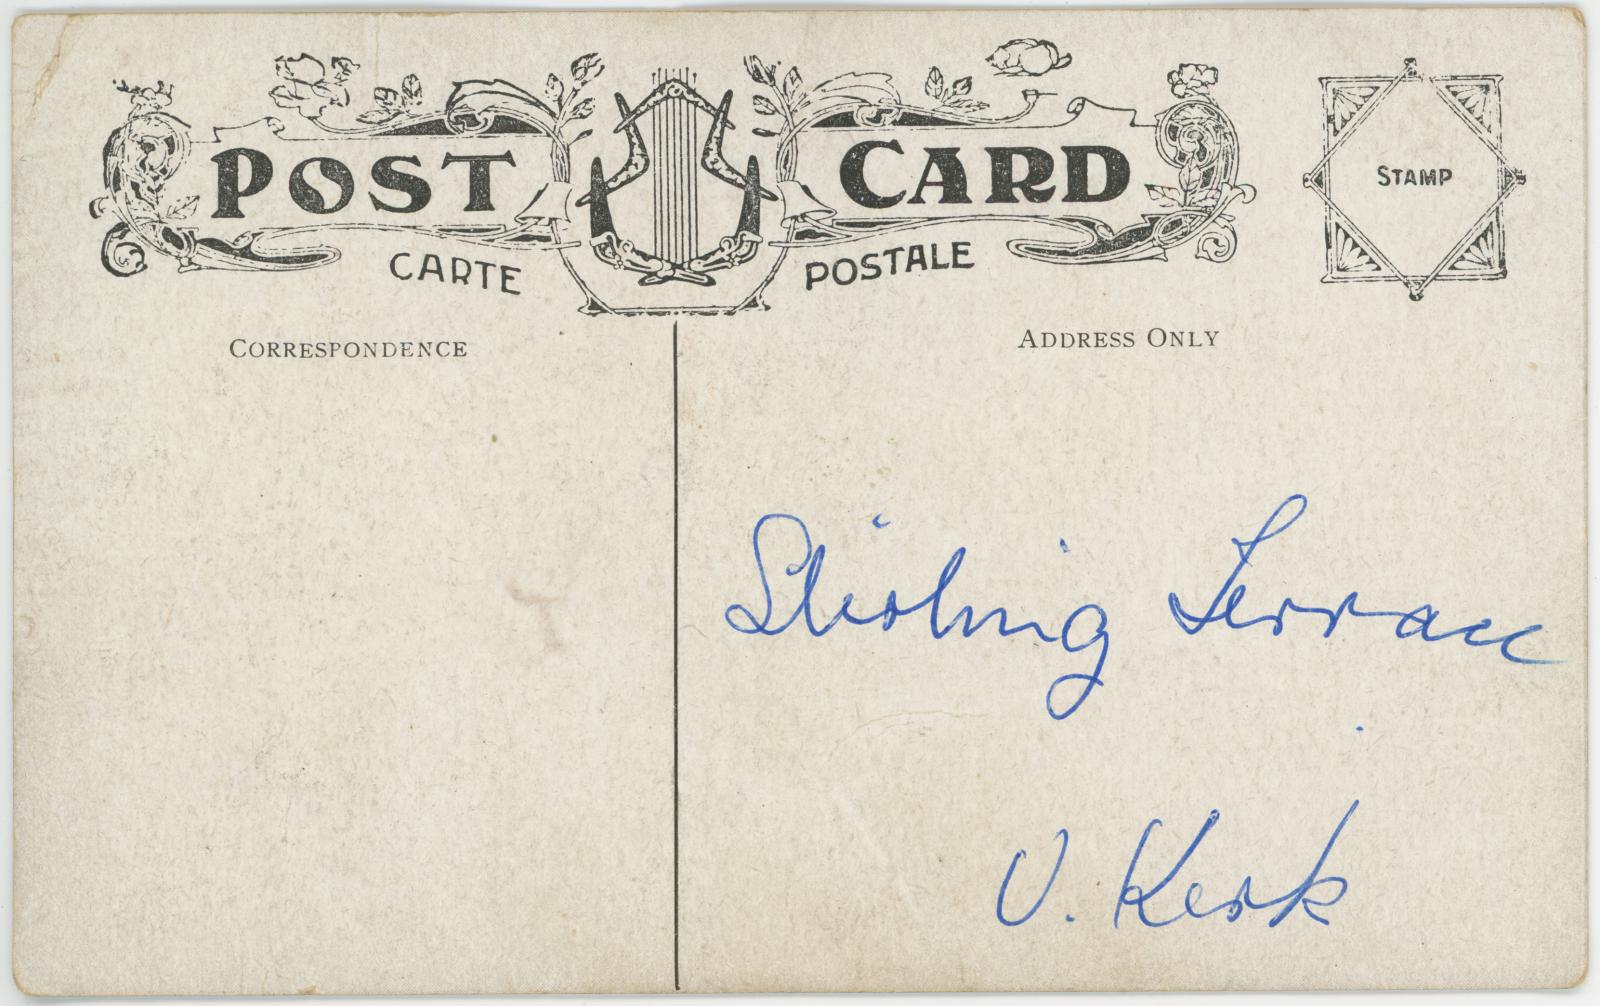 POST CARD
CARTE POSTALE
STAMP
CORRESPONDENCE
ADDRESS ONLY
Stirling Terrace
V. Kerk